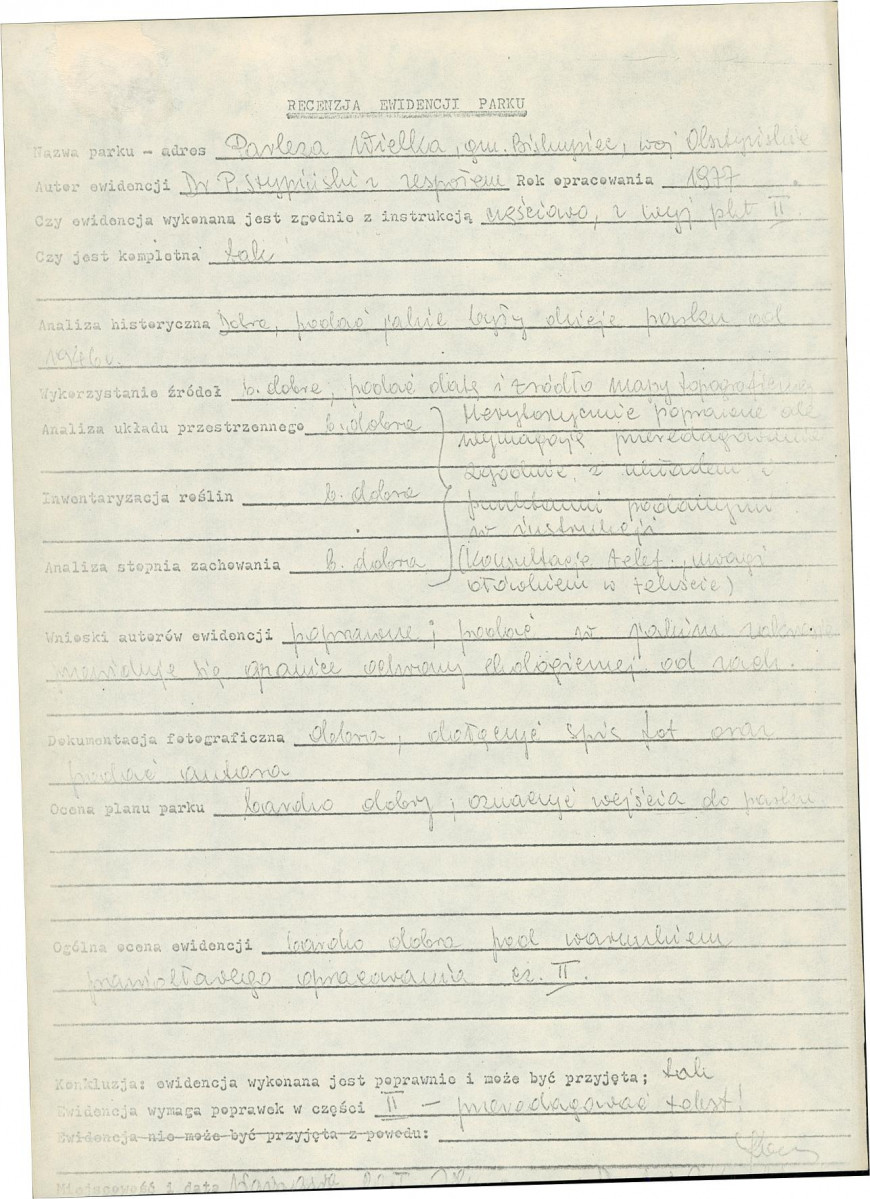 RECENZJA EWIDENCJI PARKU
Nazwa parku - adres Parleza Wielka, gm. Biskupiec, woj Olsztyńskie
Autor ewidencji Dr P. Stypiński z zespołem Rok opracowania 1977.
Czy ewidencja wykonana jest zgodnie z instrukcją częściowo, z wyj pkt II.
Czy jest kompletna tak
Analiza historyczna Dobra, podać jakie były dzieje parku od
1946r.
Wykorzystanie źródeł b. dobre; podać datę i źródło mapy topograficznej
Analiza układu przestrzennego b. dobra
Merytorycznie poprawne ale
wymagają przeredagowania
zgodnie z układem i
Inwentaryzacja roślin b. dobra
punktami podanymi
w instrukcji
Analiza stopnia zachowania b. dobra (Konsultacje telef., uwagi
ołówkiem w tekście)
Wnioski autorów ewidencji poprawne; podać w jakim zakresie
przewiduje się granice ochrony ekologicznej od zach.
Dokumentacja fotograficzna dobra, dołączyć spis fot oraz
podać autora
Ocena planu parku bardzo dobry; oznaczyć wejścia do parku
Ogólna ocena ewidencji bardzo dobra pod warunkiem
prawidłowego opracowania cz. II.
Konkluzja: ewidencja wykonana jest poprawnie i może być przyjęta; tak
Ewidencja wymaga poprawek w części II - przeredagować tekst!
Ewidencja nie może być przyjęta z powodu:
Miejscowość i data Warszawa